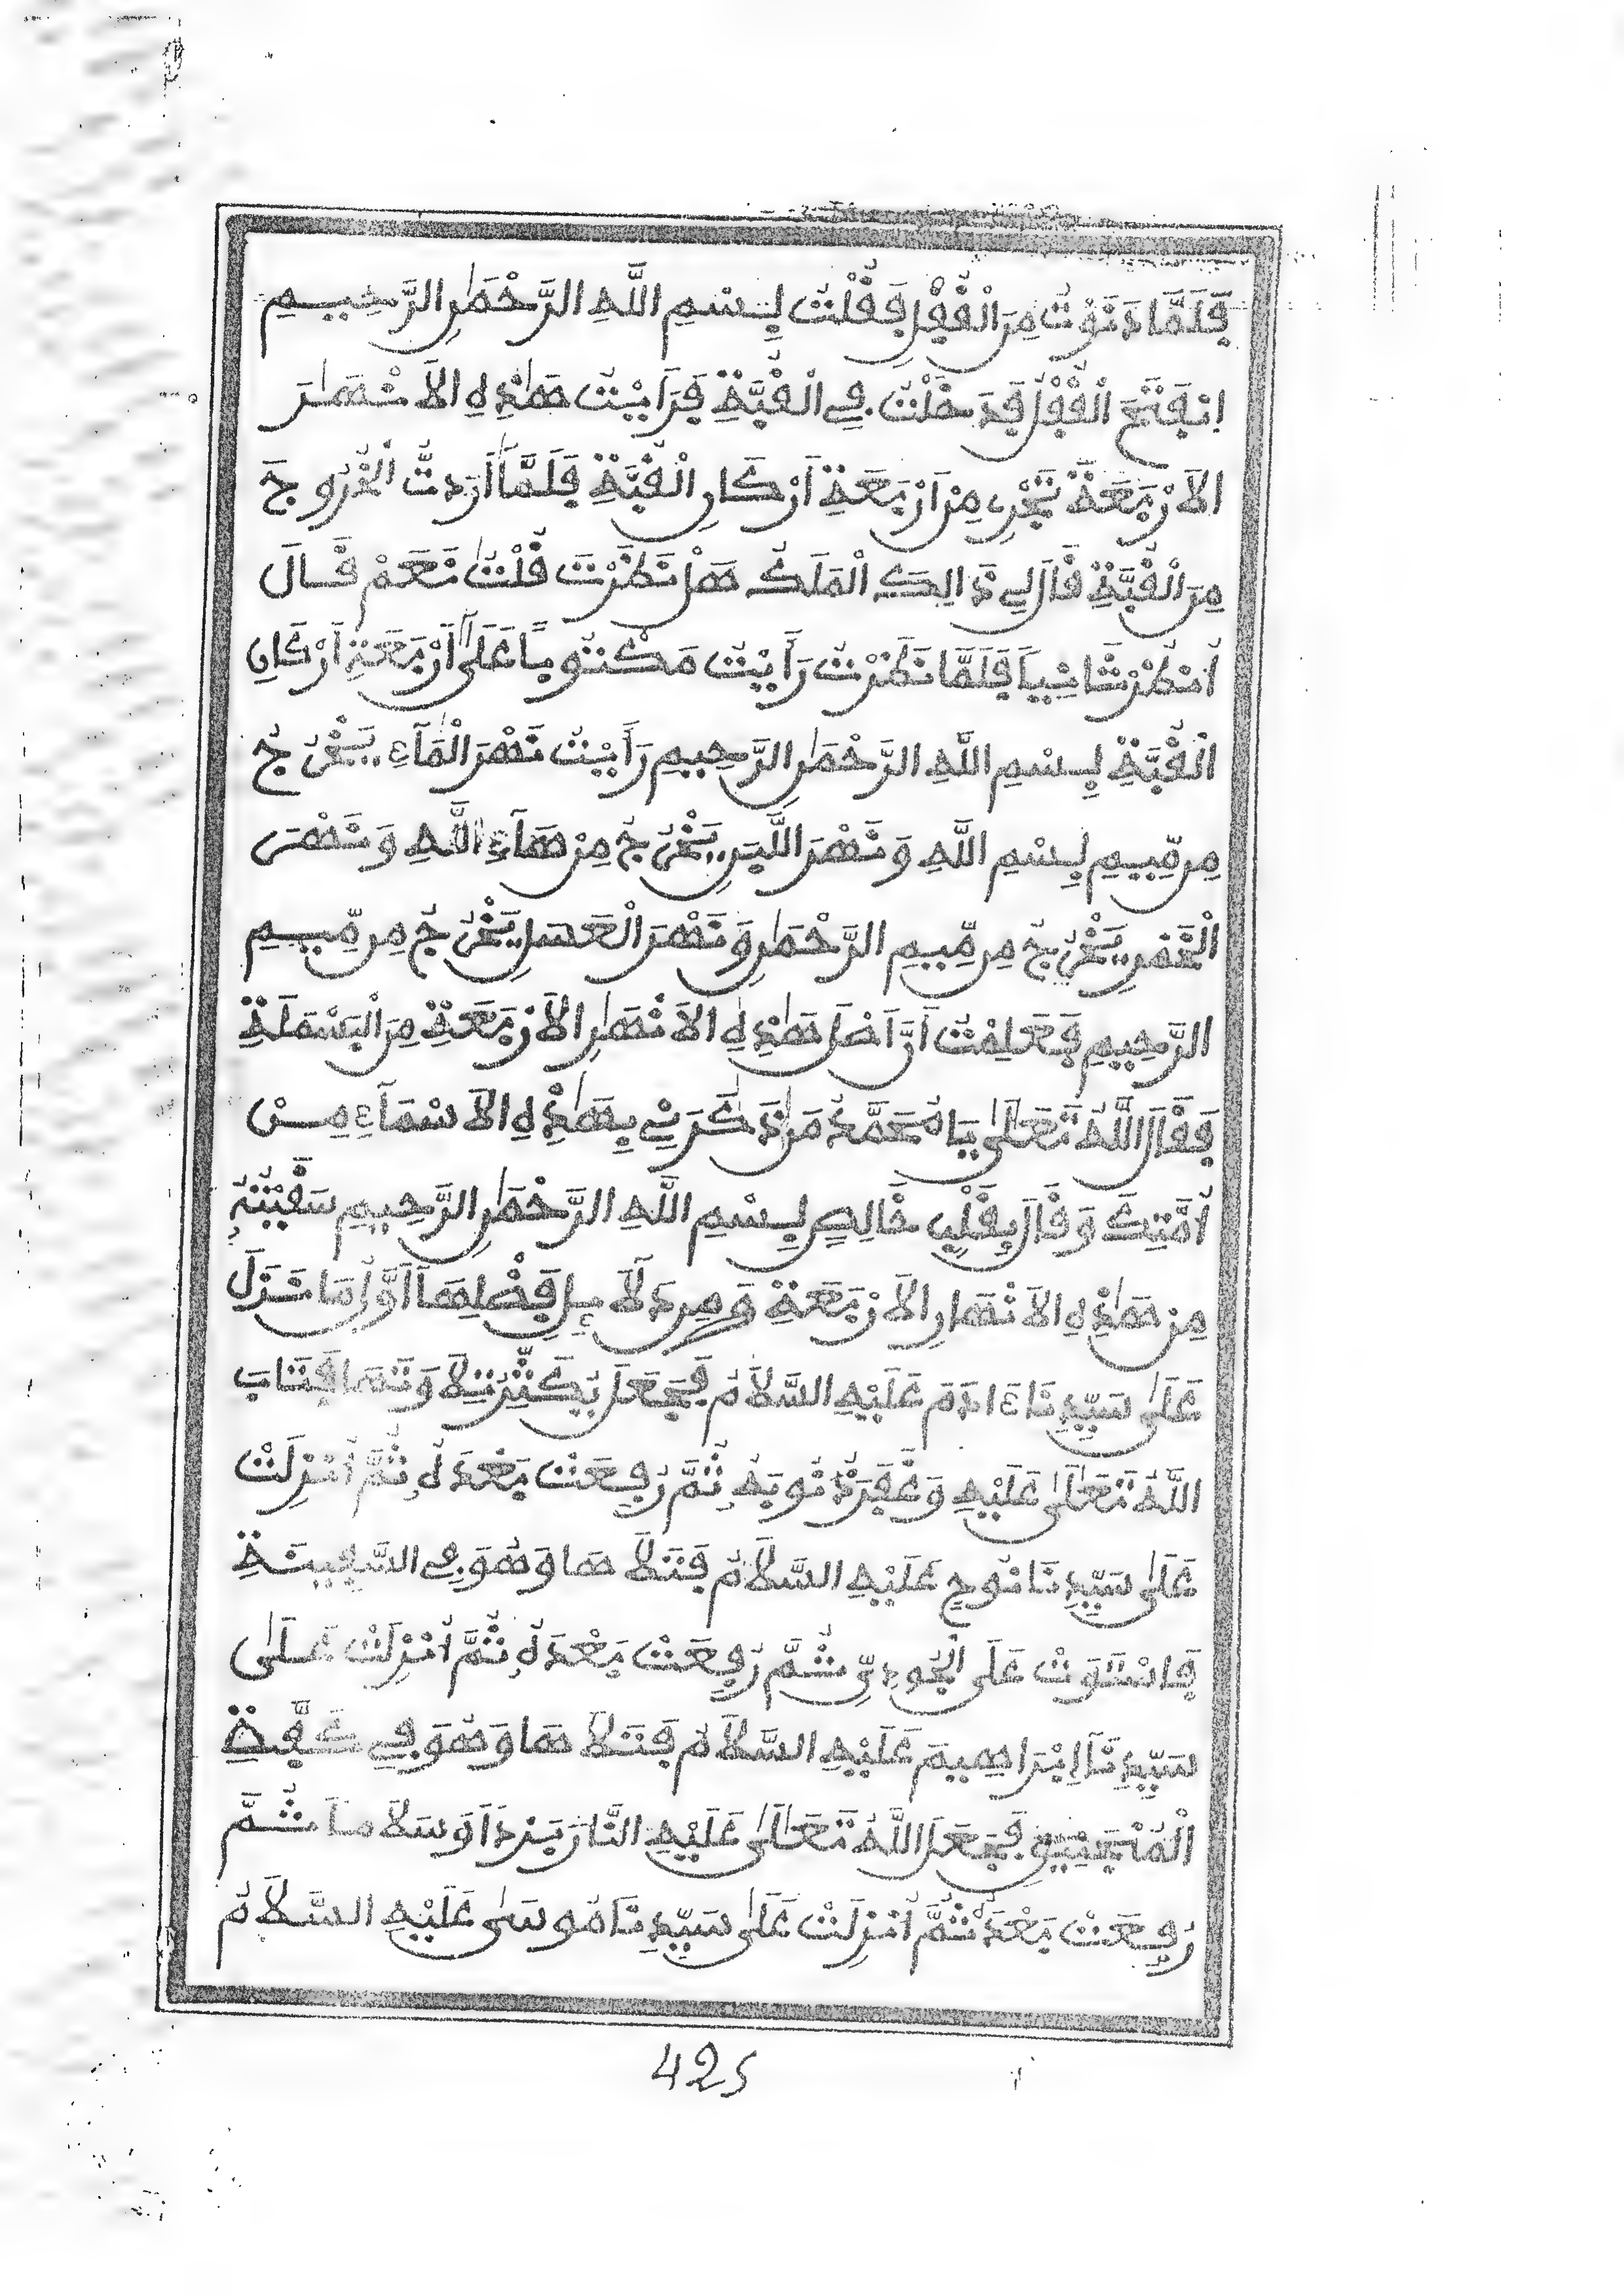 فَلَمَّا دَنَوْتُ مِنَ الْقُفْلِ فَقُلْتُ بِسْمِ اللَّهِ الرَّحْمَٰنِ الرَّحِيمِ
اِنْفَتَحَ الْقُفْلُ فَدَخَلْتُ فِي الْقُبَّةِ فَرَأَيْتُ هَٰذِهِ الْأَنْهَٰرَ
الْأَرْبَعَةَ تَجْرِي مِنْ أَرْبَعَةِ أَرْكَانِ الْقُبَّةِ فَلَمَّا أَرَدتُّ الْخُرُوجَ
مِنَ الْقُبَّةِ قَالَ لِي ذَالِكَ الْمَلَكُ هَلْ نَظَرْتَ قُلْتُ نَعَمْ قَالَ
أُنْظُرْ ثَانِياً فَلَمَّا نَظَرْتُ رَأَيْتُ مَكْتُوباً عَلَىٰ أَرْبَعَةِ أَرْكَانِ
الْقُبَّةِ بِسْمِ اللَّهِ الرَّحْمَٰنِ الرَّحِيمِ رَأَيْتُ نَهْرَ الْمَآءِ يَخْرُجُ
مِن مِّيمِ بِسْمِ اللَّهِ وَنَهْرَ اللَّبَنِ يَخْرُجُ مِنْ هَآءِ اللَّهِ وَنَهْرَ
الْخَمْرِ يَخْرُجُ مِن مِّيمِ الرَّحْمَٰنِ وَنَهْرَ الْعَسَلِ يَخْرُجُ مِن مِّيمِ
الرَّحِيمِ فَعَلِمْتُ أَنَّ أَصْلَ هَٰذِهِ الْأَنْهَٰرِ الْأَرْبَعَةِ مِنَ الْبَسْمَلَةِ
فَقَالَ اللَّهُ تَعَالَىٰ يَا مُحَمَّدُ مَن ذَكَرَنِي بِهَٰذِهِ الْأَسْمَآءِ مِنْ
أُمَّتِكَ وَقَالَ بِقَلْبٍ خَالِصٍ بِسْمِ اللَّهِ الرَّحْمَٰنِ الرَّحِيمِ سَقَيْتُهُ
مِنْ هَٰذِهِ الْأَنْهَارِ الْأَرْبَعَةِ وَمِن دَلَآئِلِ فَضْلِهَا أَوَّلُ مَا نَزَلَ
عَلَىٰ سَيِّدِنَا ءَادَمَ عَلَيْهِ السَّلَامُ فَجَعَلَ يُكَثِّرُ تِلَاوَتَهَا فَتَابَ
اللَّهُ تَعَالَىٰ عَلَيْهِ وَغَفَرَ ذُنُوبَهُ ثُمَّ رُفِعَتْ بَعْدَهُ ثُمَّ أُنْزِلَتْ
عَلَىٰ سَيِّدِنَا نُوحٍ عَلَيْهِ السَّلَامُ فَتَلَاهَا وَهُوَ فِي السَّفِينَةِ
فَاسْتَوَتْ عَلَى الْجُودِيِّ ثُمَّ رُفِعَتْ بَعْدَهُ ثُمَّ أُنْزِلَتْ عَلَىٰ
سَيِّدِنَا إِبْرَاهِيمَ عَلَيْهِ السَّلَامُ فَتَلَاهَا وَهُوَ فِي كَفَّةِ
الْمَنْجَنِيقِ فَجَعَلَ اللَّهُ تَعَالَىٰ عَلَيْهِ النَّارَ بَرْداً وَسَلَاماً ثُمَّ
رُفِعَتْ بَعْدَهُ ثُمَّ أُنْزِلَتْ عَلَىٰ سَيِّدِنَا مُوسَىٰ عَلَيْهِ السَّلَامُ
425